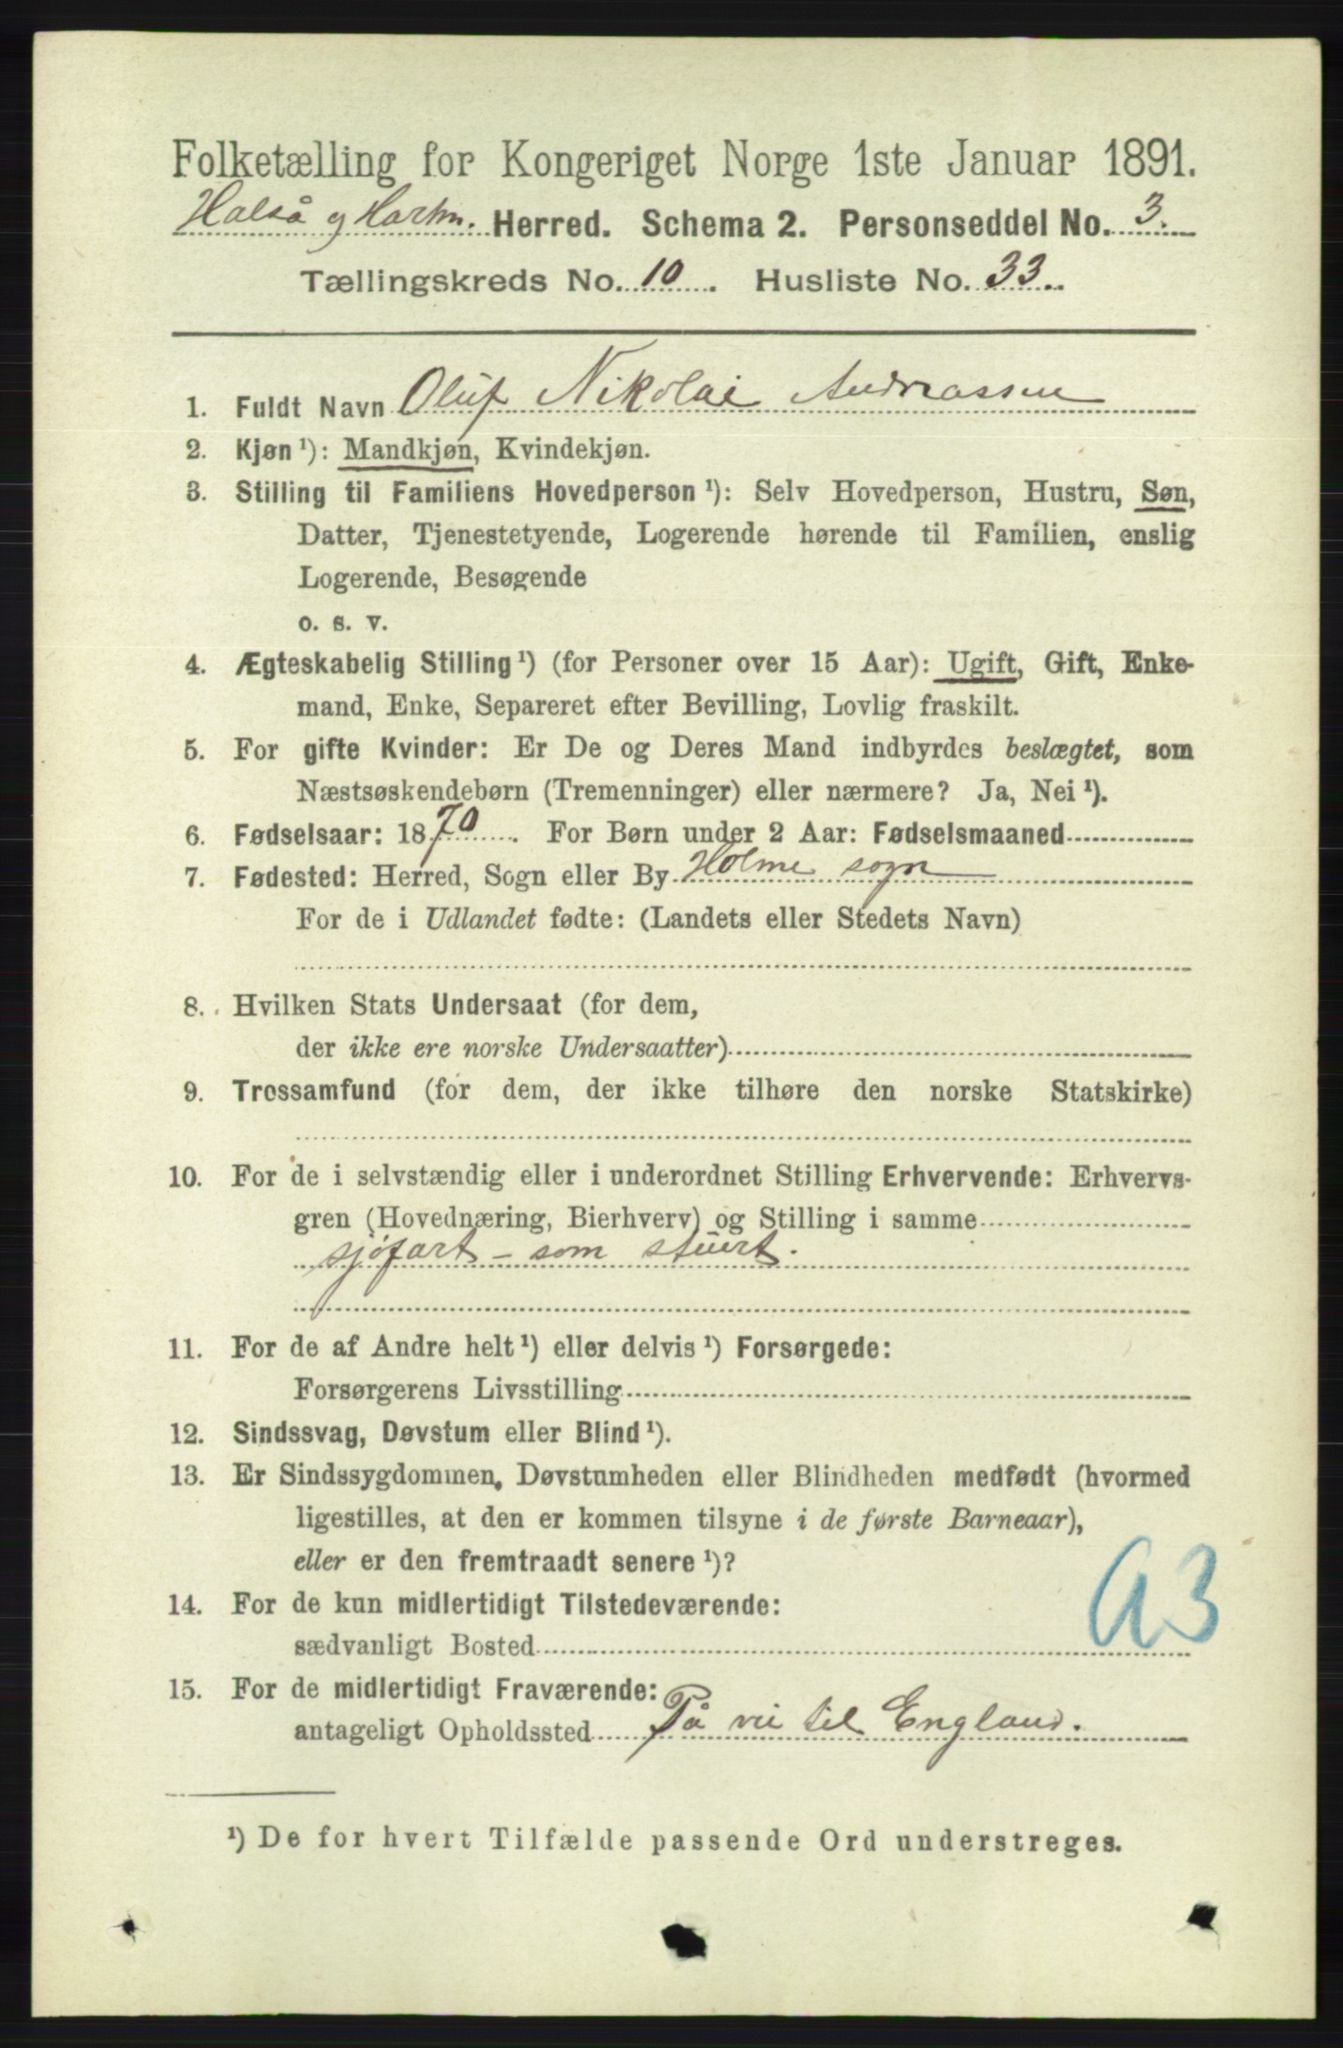 Folketælling for Kongeriget Norge 1ste Januar 1891.
Halså og Harkm. Herred. Schema 2. Personseddel No. 3.
Tællingskreds No. 10. Husliste No. 33.
1. Fuldt Navn Oluf Nikolai Andreassen
2. Kjøn ¹): Mandkjøn, Kvindekjøn.
3. Stilling til Familiens Hovedperson ¹): Selv Hovedperson, Hustru, Søn,
Datter, Tjenestetyende, Logerende hørende til Familien, enslig
Logerende, Besøgende
o. s. v.
4. Ægteskabelig Stilling ¹) (for Personer over 15 Aar): Ugift, Gift, Enke-
mand, Enke, Separeret efter Bevilling, Lovlig fraskilt.
5. For gifte Kvinder: Er De og Deres Mand indbyrdes beslægtet, som
Næstsøskendebørn (Tremenninger) eller nærmere? Ja, Nei ¹).
6. Fødselsaar: 1870. For Børn under 2 Aar: Fødselsmaaned
7. Fødested: Herred, Sogn eller By Holme sogn
For de i Udlandet fødte: (Landets eller Stedets Navn)
8. Hvilken Stats Undersaat (for dem,
der ikke ere norske Undersaatter)
9. Trossamfund (for dem, der ikke tilhøre den norske Statskirke)
10. For de i selvstændig eller i underordnet Stilling Erhvervende: Erhvervs-
gren (Hovednæring, Bierhverv) og Stilling i samme
sjøfart – som stuert.
11. For de af Andre helt ¹) eller delvis ¹) Forsørgede:
Forsørgerens Livsstilling
12. Sindssvag, Døvstum eller Blind ¹).
13. Er Sindssygdommen, Døvstumheden eller Blindheden medfødt (hvormed
ligestilles, at den er kommen tilsyne i de første Barneaar),
eller er den fremtraadt senere ¹)?
14. For de kun midlertidigt Tilstedeværende:
sædvanligt Bosted
A3
15. For de midlertidigt Fraværende:
antageligt Opholdssted På vei til England.
¹) De for hvert Tilfælde passende Ord understreges.